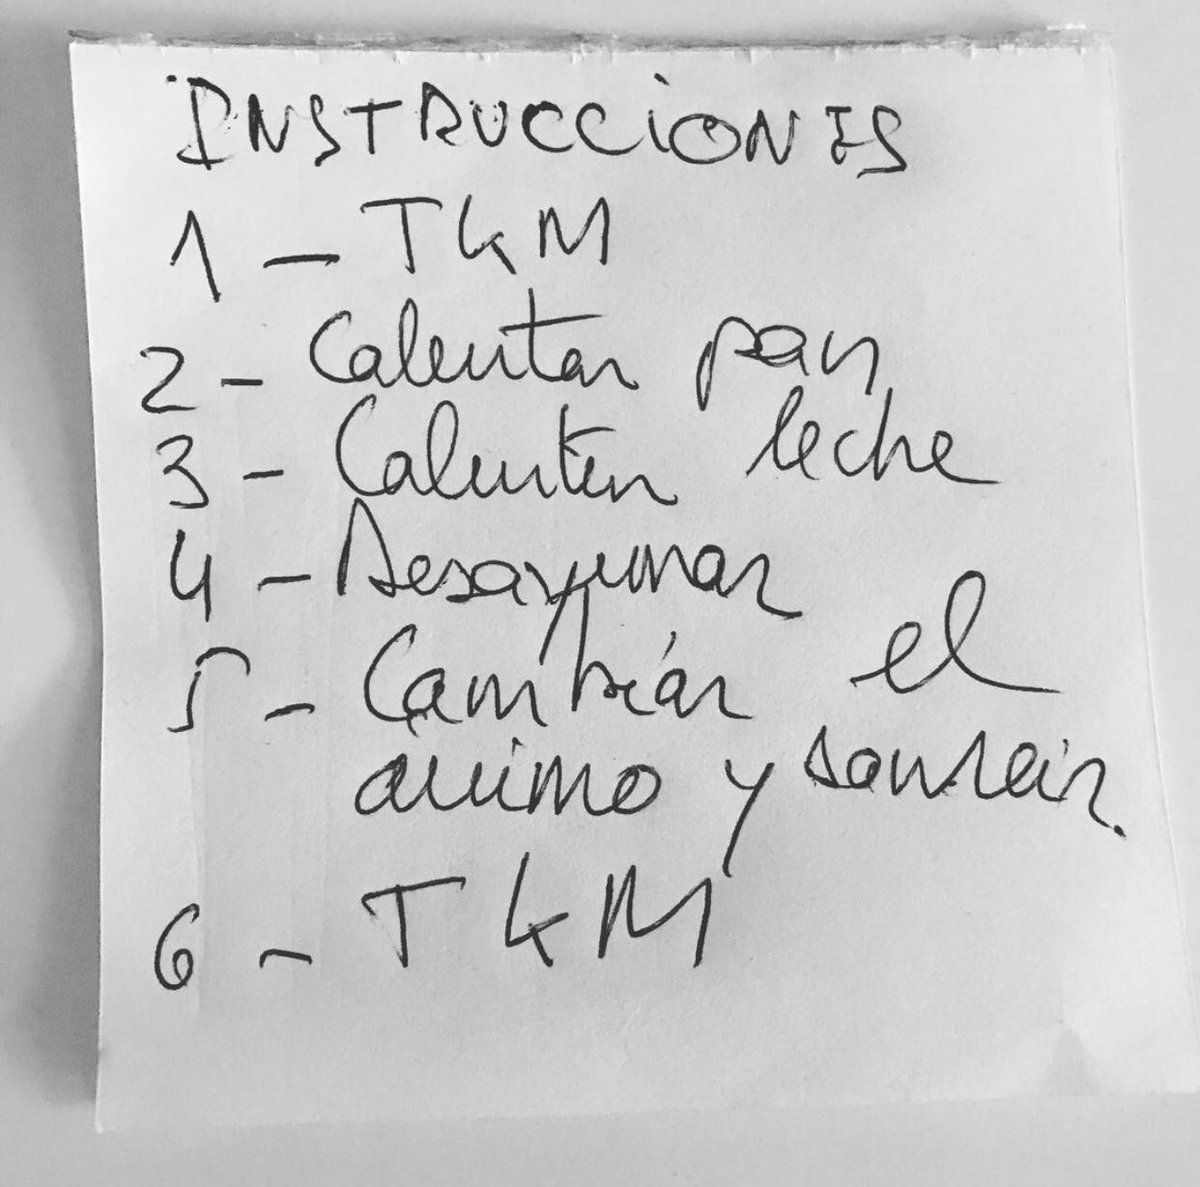 INSTRUCCIONES
1 - TKM
2 - Calentar pan
3 - Calentar leche
4 - Desayunar
5 - Cambiar el
animo y sonreir.
6 - TKM